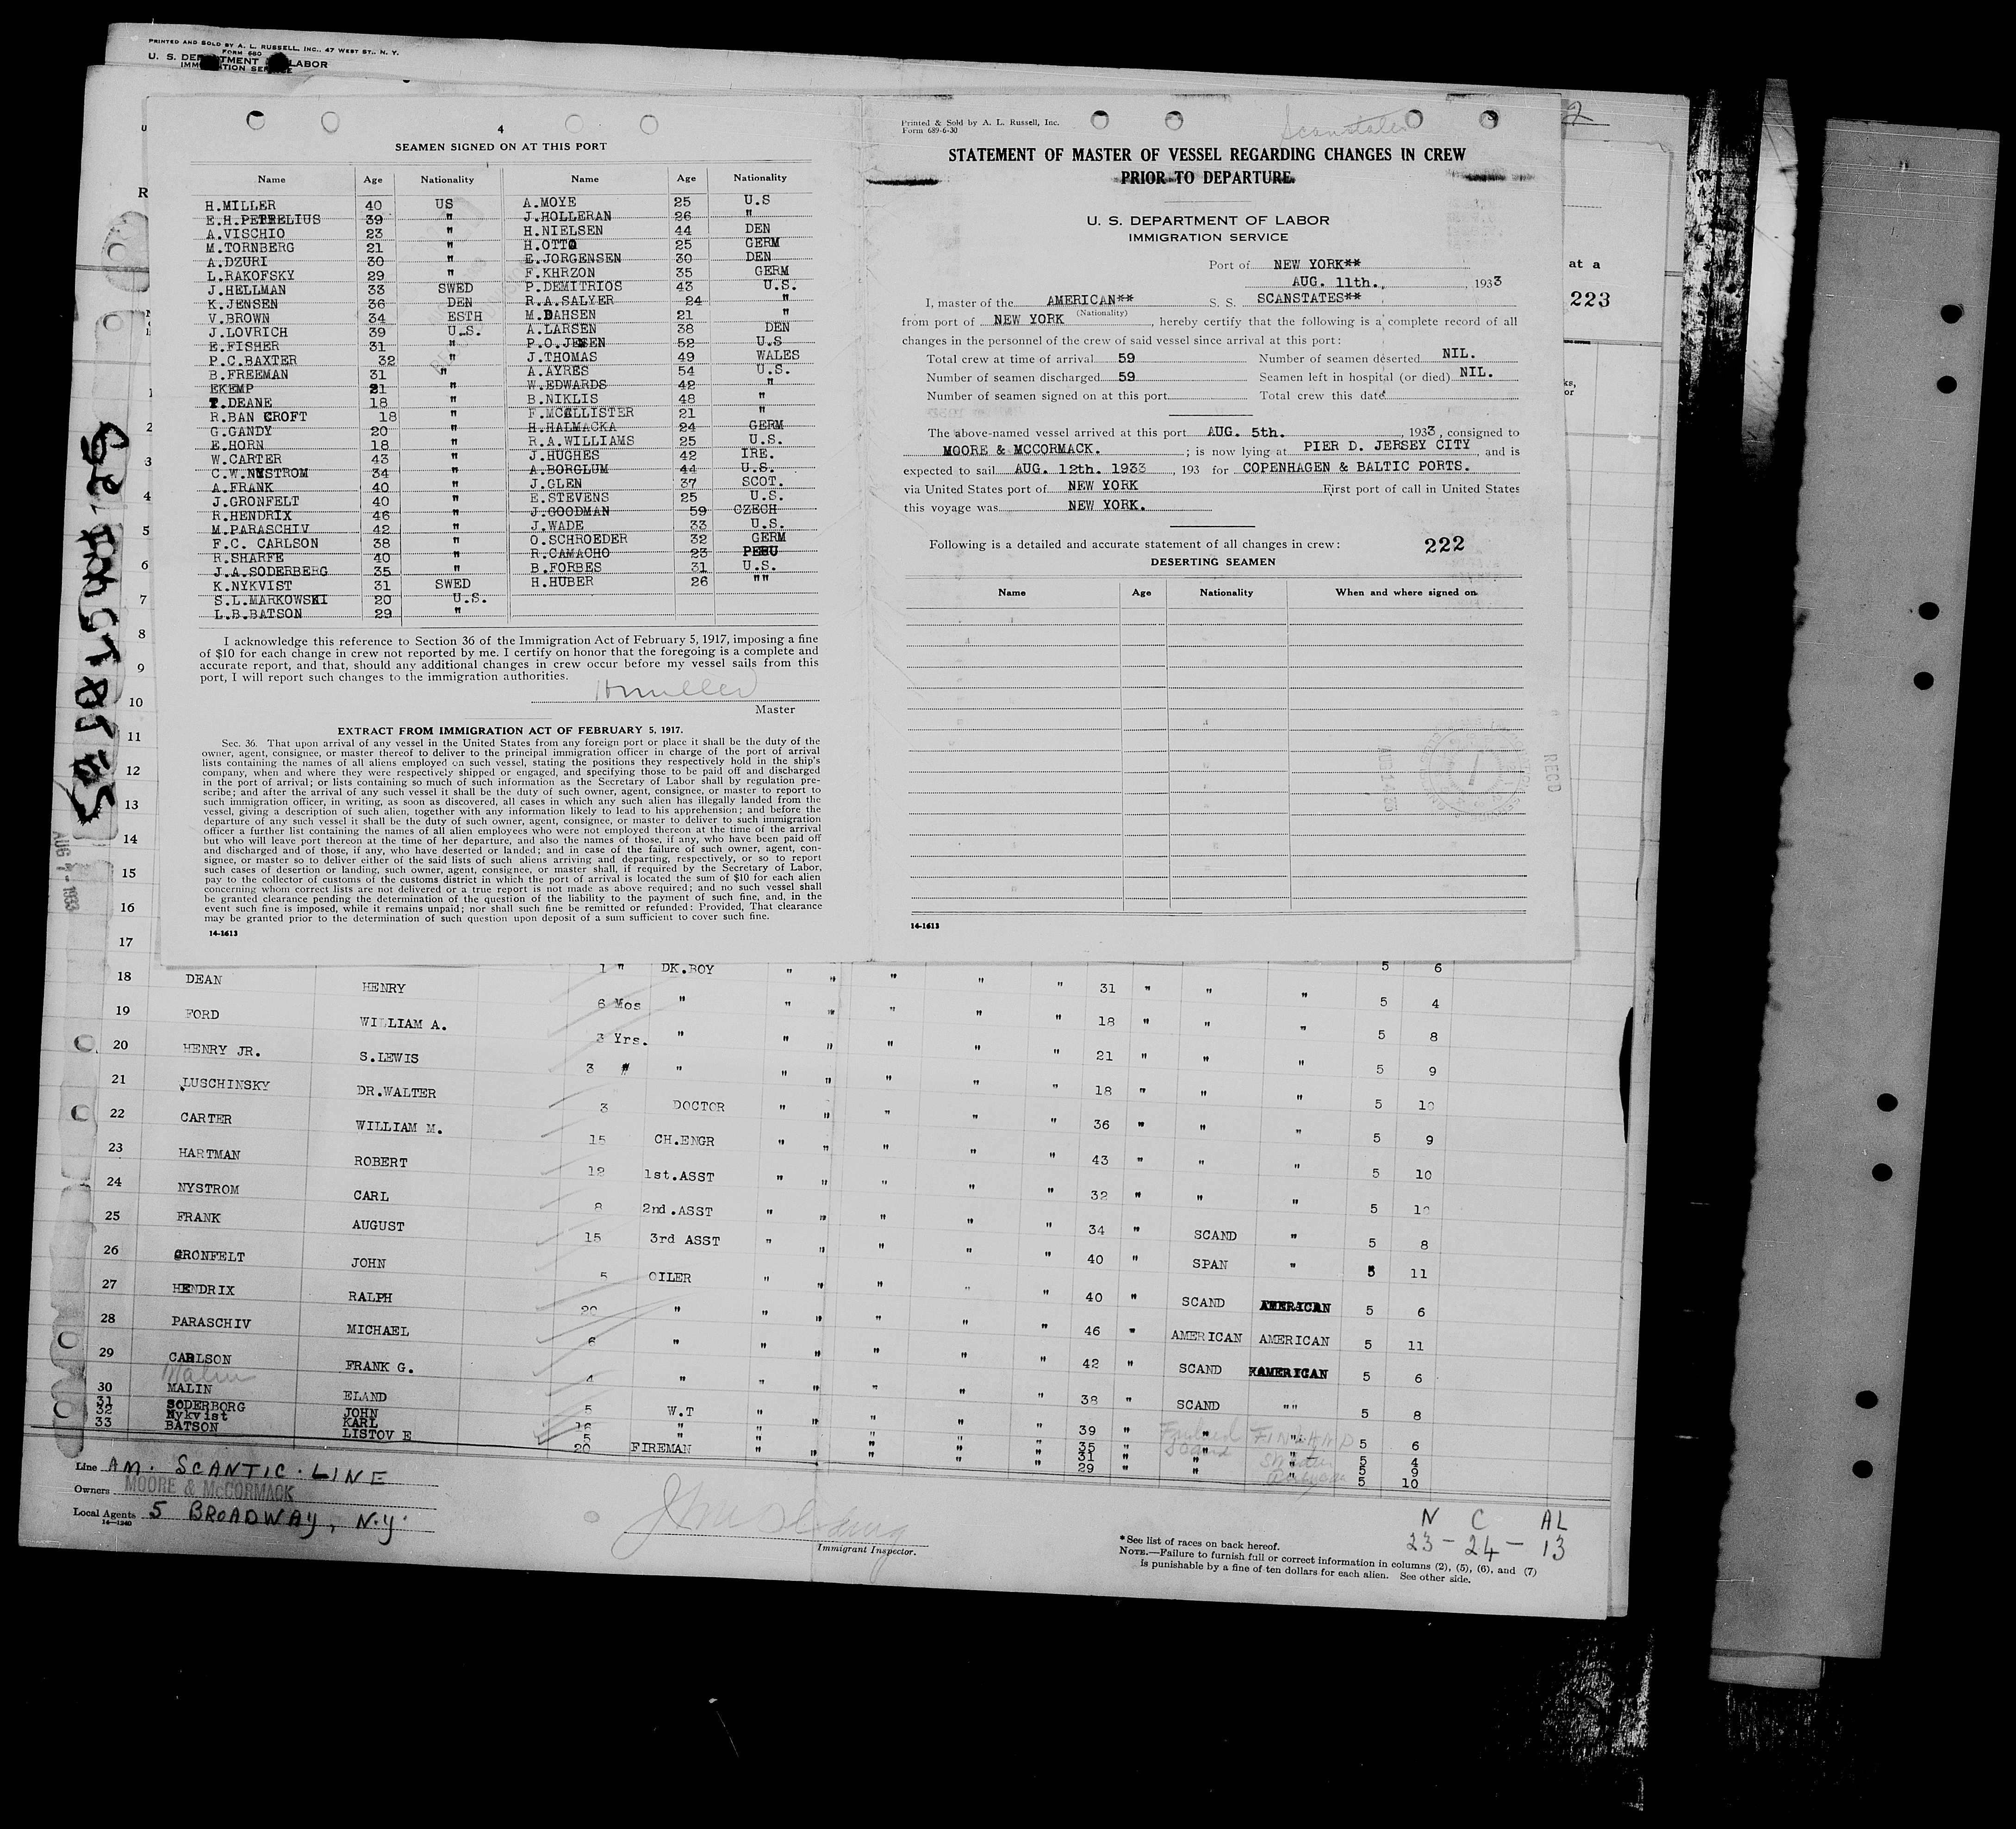 PRINTED AND SOLD BY A. L. RUSSELL, INC., 47 WEST ST., N. Y.
FORM 680
U. S. DEPARTMENT LABOR
IMMIGRATION SERVICE
2
at a
223
4
SEAMEN SIGNED ON AT THIS PORT
Name Age Nationality Name Age Nationality
H.MILLER 40 US A.MOYE 25 U.S
E.H.PETRELIUS 39 " J.HOLLERAN 26 "
A.VISCHIO 23 " H.NIELSEN 44 DEN
M.TORNBERG 21 " H.OTTO 25 GERM
A.DZURI 30 " E.JORGENSEN 30 DEN
L.RAKOFSKY 29 " F.KHRZON 35 GERM
J.HELLMAN 33 SWED P.DEMITRIOS 43 U.S.
K.JENSEN 36 DEN R.A.SALYER 24 "
V.BROWN 34 ESTH M.DAHSEN 21 "
J.LOVRICH 39 U.S. A.LARSEN 38 DEN
E.FISHER 31 " P.O.JESEN 52 U.S
P.C.BAXTER 32 " J.THOMAS 49 WALES
B.FREEMAN 31 " A.AYRES 54 U.S.
EKEMP 21 " W.EDWARDS 42 "
T.DEANE 18 " B.NIKLIS 48 "
R.BAN CROFT 18 " F.MCALLISTER 21 "
G.GANDY 20 " H.HALMACKA 24 GERM
E.HORN 18 " R.A.WILLIAMS 25 U.S.
W.CARTER 43 " J.HUGHES 42 IRE.
C.W.NYSTROM 34 " A.BORGLUM 44 U.S.
A.FRANK 40 " J.GLEN 37 SCOT.
J.GRONFELT 40 " E.STEVENS 25 U.S.
R.HENDRIX 46 " J.GOODMAN 59 CZECH
M.PARASCHIV 42 " J.WADE 33 U.S.
F.C. CARLSON 38 " O.SCHROEDER 32 GERM
R.SHARFE 40 " R.CAMACHO 23 PERU
J.A.SODERBERG 35 " B.FORBES 31 U.S.
K.NYKVIST 31 SWED H.HUBER 26 ""
S.L.MARKOWSKI 20 U.S.
L.B.BATSON 29 "
I acknowledge this reference to Section 36 of the Immigration Act of February 5, 1917, imposing a fine
of $10 for each change in crew not reported by me. I certify on honor that the foregoing is a complete and
accurate report, and that, should any additional changes in crew occur before my vessel sails from this
port, I will report such changes to the immigration authorities.
HMiller
Master
EXTRACT FROM IMMIGRATION ACT OF FEBRUARY 5, 1917.
Sec. 36. That upon arrival of any vessel in the United States from any foreign port or place it shall be the duty of the
owner, agent, consignee, or master thereof to deliver to the principal immigration officer in charge of the port of arrival
lists containing the names of all aliens employed on such vessel, stating the positions they respectively hold in the ship's
company, when and where they were respectively shipped or engaged, and specifying those to be paid off and discharged
in the port of arrival; or lists containing so much of such information as the Secretary of Labor shall by regulation pre-
scribe; and after the arrival of any such vessel it shall be the duty of such owner, agent, consignee, or master to report to
such immigration officer, in writing, as soon as discovered, all cases in which any such alien has illegally landed from the
vessel, giving a description of such alien, together with any information likely to lead to his apprehension; and before the
departure of any such vessel it shall be the duty of such owner, agent, consignee, or master to deliver to such immigration
officer a further list containing the names of all alien employees who were not employed thereon at the time of the arrival
but who will leave port thereon at the time of her departure, and also the names of those, if any, who have been paid off
and discharged and of those, if any, who have deserted or landed; and in case of the failure of such owner, agent, con-
signee, or master so to deliver either of the said lists of such aliens arriving and departing, respectively, or so to report
such cases of desertion or landing, such owner, agent, consignee, or master shall, if required by the Secretary of Labor,
pay to the collector of customs of the customs district in which the port of arrival is located the sum of $10 for each alien
concerning whom correct lists are not delivered or a true report is not made as above required; and no such vessel shall
be granted clearance pending the determination of the question of the liability to the payment of such fine, and, in the
event such fine is imposed, while it remains unpaid; nor shall such fine be remitted or refunded: Provided, That clearance
may be granted prior to the determination of such question upon deposit of a sum sufficient to cover such fine.
14-1613
Printed & Sold by A. L. Russell, Inc.
Form 689-6-30
Scanstates
STATEMENT OF MASTER OF VESSEL REGARDING CHANGES IN CREW
PRIOR TO DEPARTURE
U. S. DEPARTMENT OF LABOR
IMMIGRATION SERVICE
Port of NEW YORK**
AUG. 11th., 1933
I, master of the AMERICAN** S. S. SCANSTATES**
(Nationality)
from port of NEW YORK, hereby certify that the following is a complete record of all
changes in the personnel of the crew of said vessel since arrival at this port:
Total crew at time of arrival 59 Number of seamen deserted NIL.
Number of seamen discharged 59 Seamen left in hospital (or died) NIL.
Number of seamen signed on at this port Total crew this date
The above-named vessel arrived at this port AUG. 5th. , 1933, consigned to
MOORE & MCCORMACK. ; is now lying at PIER D. JERSEY CITY , and is
expected to sail AUG. 12th. 1933 , 193 for COPENHAGEN & BALTIC PORTS.
via United States port of NEW YORK First port of call in United States
this voyage was NEW YORK.
Following is a detailed and accurate statement of all changes in crew: 222
DESERTING SEAMEN
Name Age Nationality When and where signed on
REC'D
14-1613
AUG 7 - 1933
1
2
3
4
5
6
7
8
9
10
11
12
13
14
15
16
17
1 " DK.BOY " " " " " 5 6
18 DEAN HENRY 6 Mos " " " " " " 31 " " " 5 4
19 FORD WILLIAM A. 3 Yrs. " " " " " " 18 " " " 5 8
20 HENRY JR. S.LEWIS 3 " " " " " " " 21 " " " 5 9
21 LUSCHINSKY DR.WALTER 3 DOCTOR " " " " " 18 " " " 5 10
22 CARTER WILLIAM M. 15 CH.ENGR " " " " " 36 " " " 5 9
23 HARTMAN ROBERT 12 1st.ASST " " " " " 43 " " " 5 10
24 NYSTROM CARL 8 2nd.ASST " " " " " 32 " " " 5 10
25 FRANK AUGUST 15 3rd ASST " " " " " 34 " SCAND " 5 8
26 GRONFELT JOHN 5 OILER " " " " " 40 " SPAN " 5 11
27 HENDRIX RALPH 20 " " " " " " 40 " SCAND AMERICAN 5 6
28 PARASCHIV MICHAEL 6 " " " " " " 46 " AMERICAN AMERICAN 5 11
29 CARLSON FRANK G. 4 " " " " " " 42 " SCAND AMERICAN 5 6
Malin
30 MALIN ELAND 5 W.T " " " " " 38 " SCAND "" 5 8
31 SODERBORG JOHN 16 " " " " " " 39 " " FINLAND 5 6
32 Nykvist KARL 5 " " " " " " 35 " Scand " 5 4
33 BATSON LISTOV E 20 FIREMAN " " " " " 31 " " Sweden 5 9
29 " " " 5 10
Line AM. SCANTIC. LINE
Owners MOORE & McCORMACK
Local Agents 5 BROADWAY, N.Y.
14-1240
Immigrant Inspector.
N C AL
23 - 24 - 13
*See list of races on back hereof.
NOTE.—Failure to furnish full or correct information in columns (2), (5), (6), and (7)
is punishable by a fine of ten dollars for each alien. See other side.